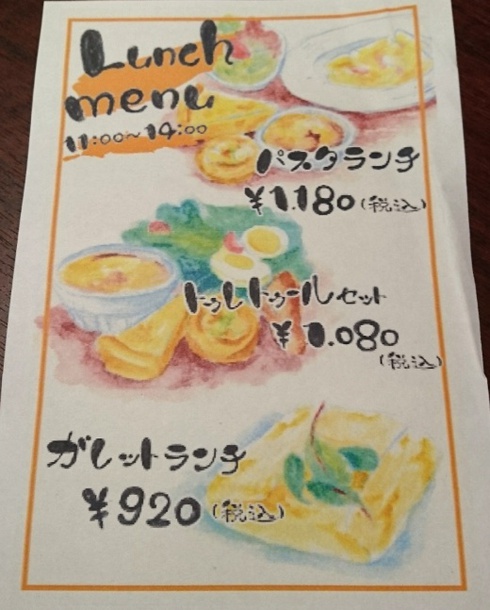 Lunch
menu
11:00~14:00
パスタランチ
¥1.180(税込)
トゥレトゥールセット
¥1.080
(税込)
ガレットランチ
¥920(税込)